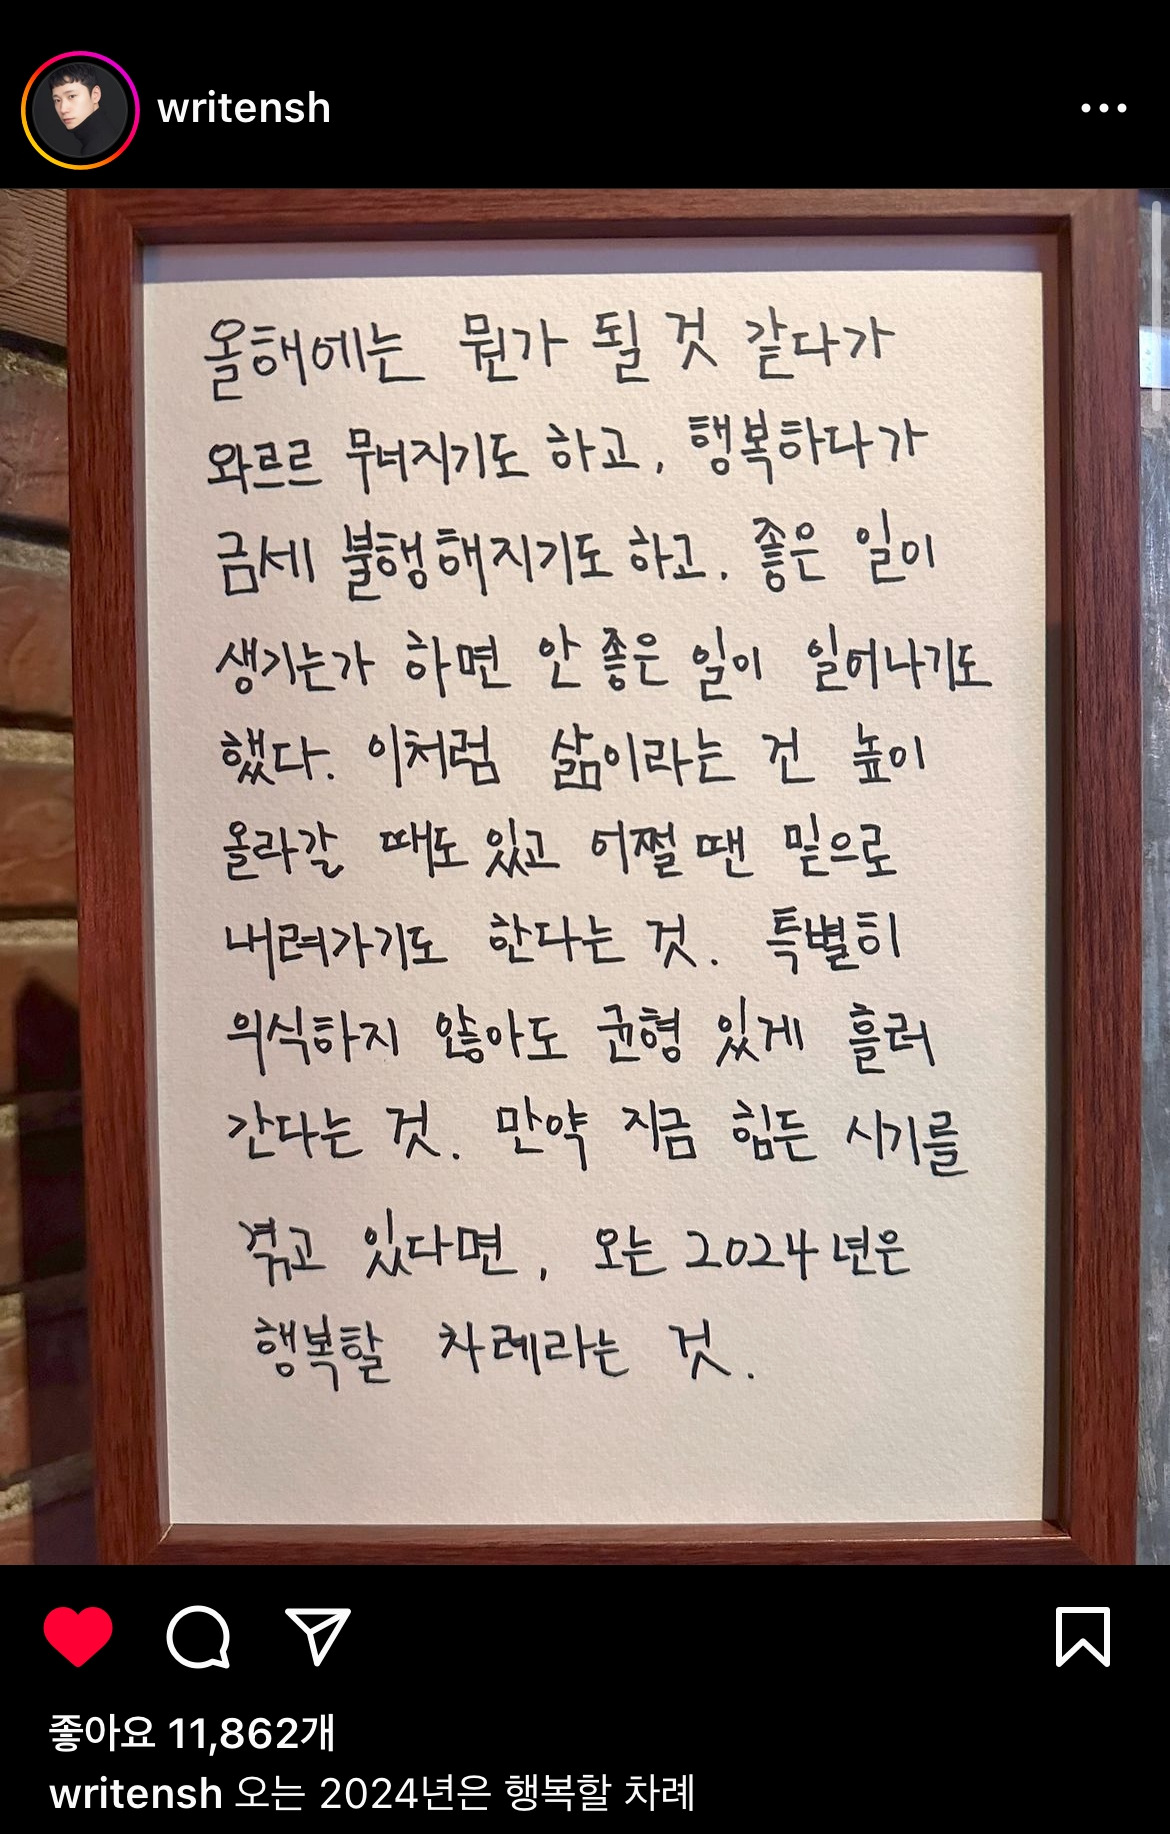 writensh
올해에는 뭔가 될 것 같다가
와르르 무너지기도 하고, 행복하다가
금세 불행해지기도 하고. 좋은 일이
생기는가 하면 안 좋은 일이 일어나기도
했다. 이처럼 삶이라는 건 높이
올라갈 때도 있고 어쩔 땐 밑으로
내려가기도 한다는 것. 특별히
의식하지 않아도 균형 있게 흘러
간다는 것. 만약 지금 힘든 시기를
겪고 있다면, 오는 2024년은
행복할 차례라는 것.
좋아요 11,862개
writensh 오는 2024년은 행복할 차례